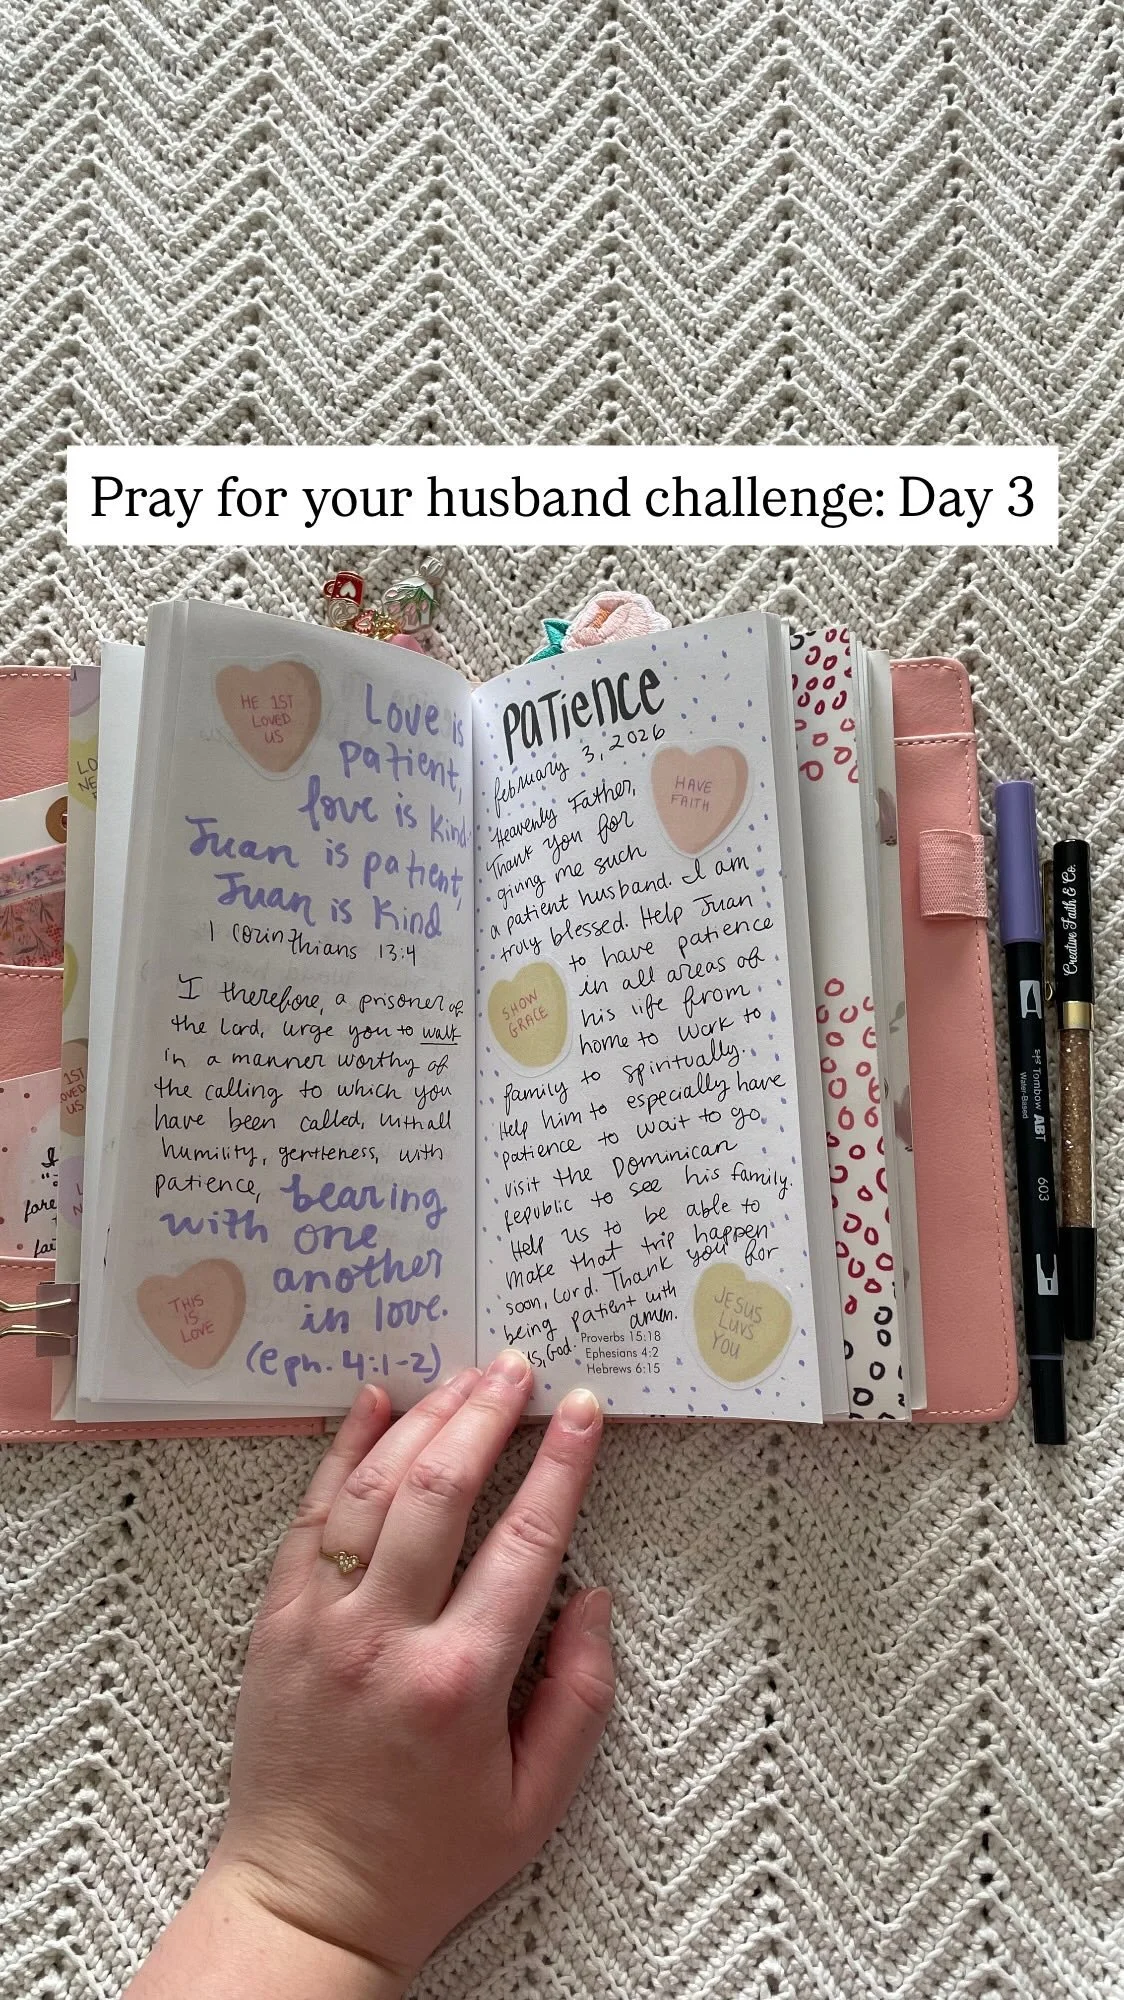 Pray for your husband challenge: Day 3
HE 1ST
LOVED
US
Love is
patient,
love is kind.
Juan is patient,
Juan is kind
1 corinthians 13:4
I therefore, a prisoner of
the Lord, urge you to walk
in a manner worthy of
the calling to which you
have been called, with all
humility, gentleness, with
patience, bearing
with one
another
in love.
(eph. 4:1-2)
THIS
IS
LOVE
PATIENCE
february 3, 2026
Heavenly Father,
Thank you for
giving me such
a patient husband. I am
truly blessed. Help Juan
to have patience
in all areas of
his life from
home to work to
family to spiritually.
Help him to especially have
patience to wait to go
visit the Dominican
Republic to see his family.
Help us to be able to
make that trip happen
soon, Lord. Thank you for
being patient with
us, God. amen.
HAVE
FAITH
SHOW
GRACE
JESUS
LUVS
YOU
Proverbs 15:18
Ephesians 4:2
Hebrews 6:15
LO
NE
1ST
LOVED
US
fore
fai
Tombow ABT
Water-Based
603
Creative Faith & Co.